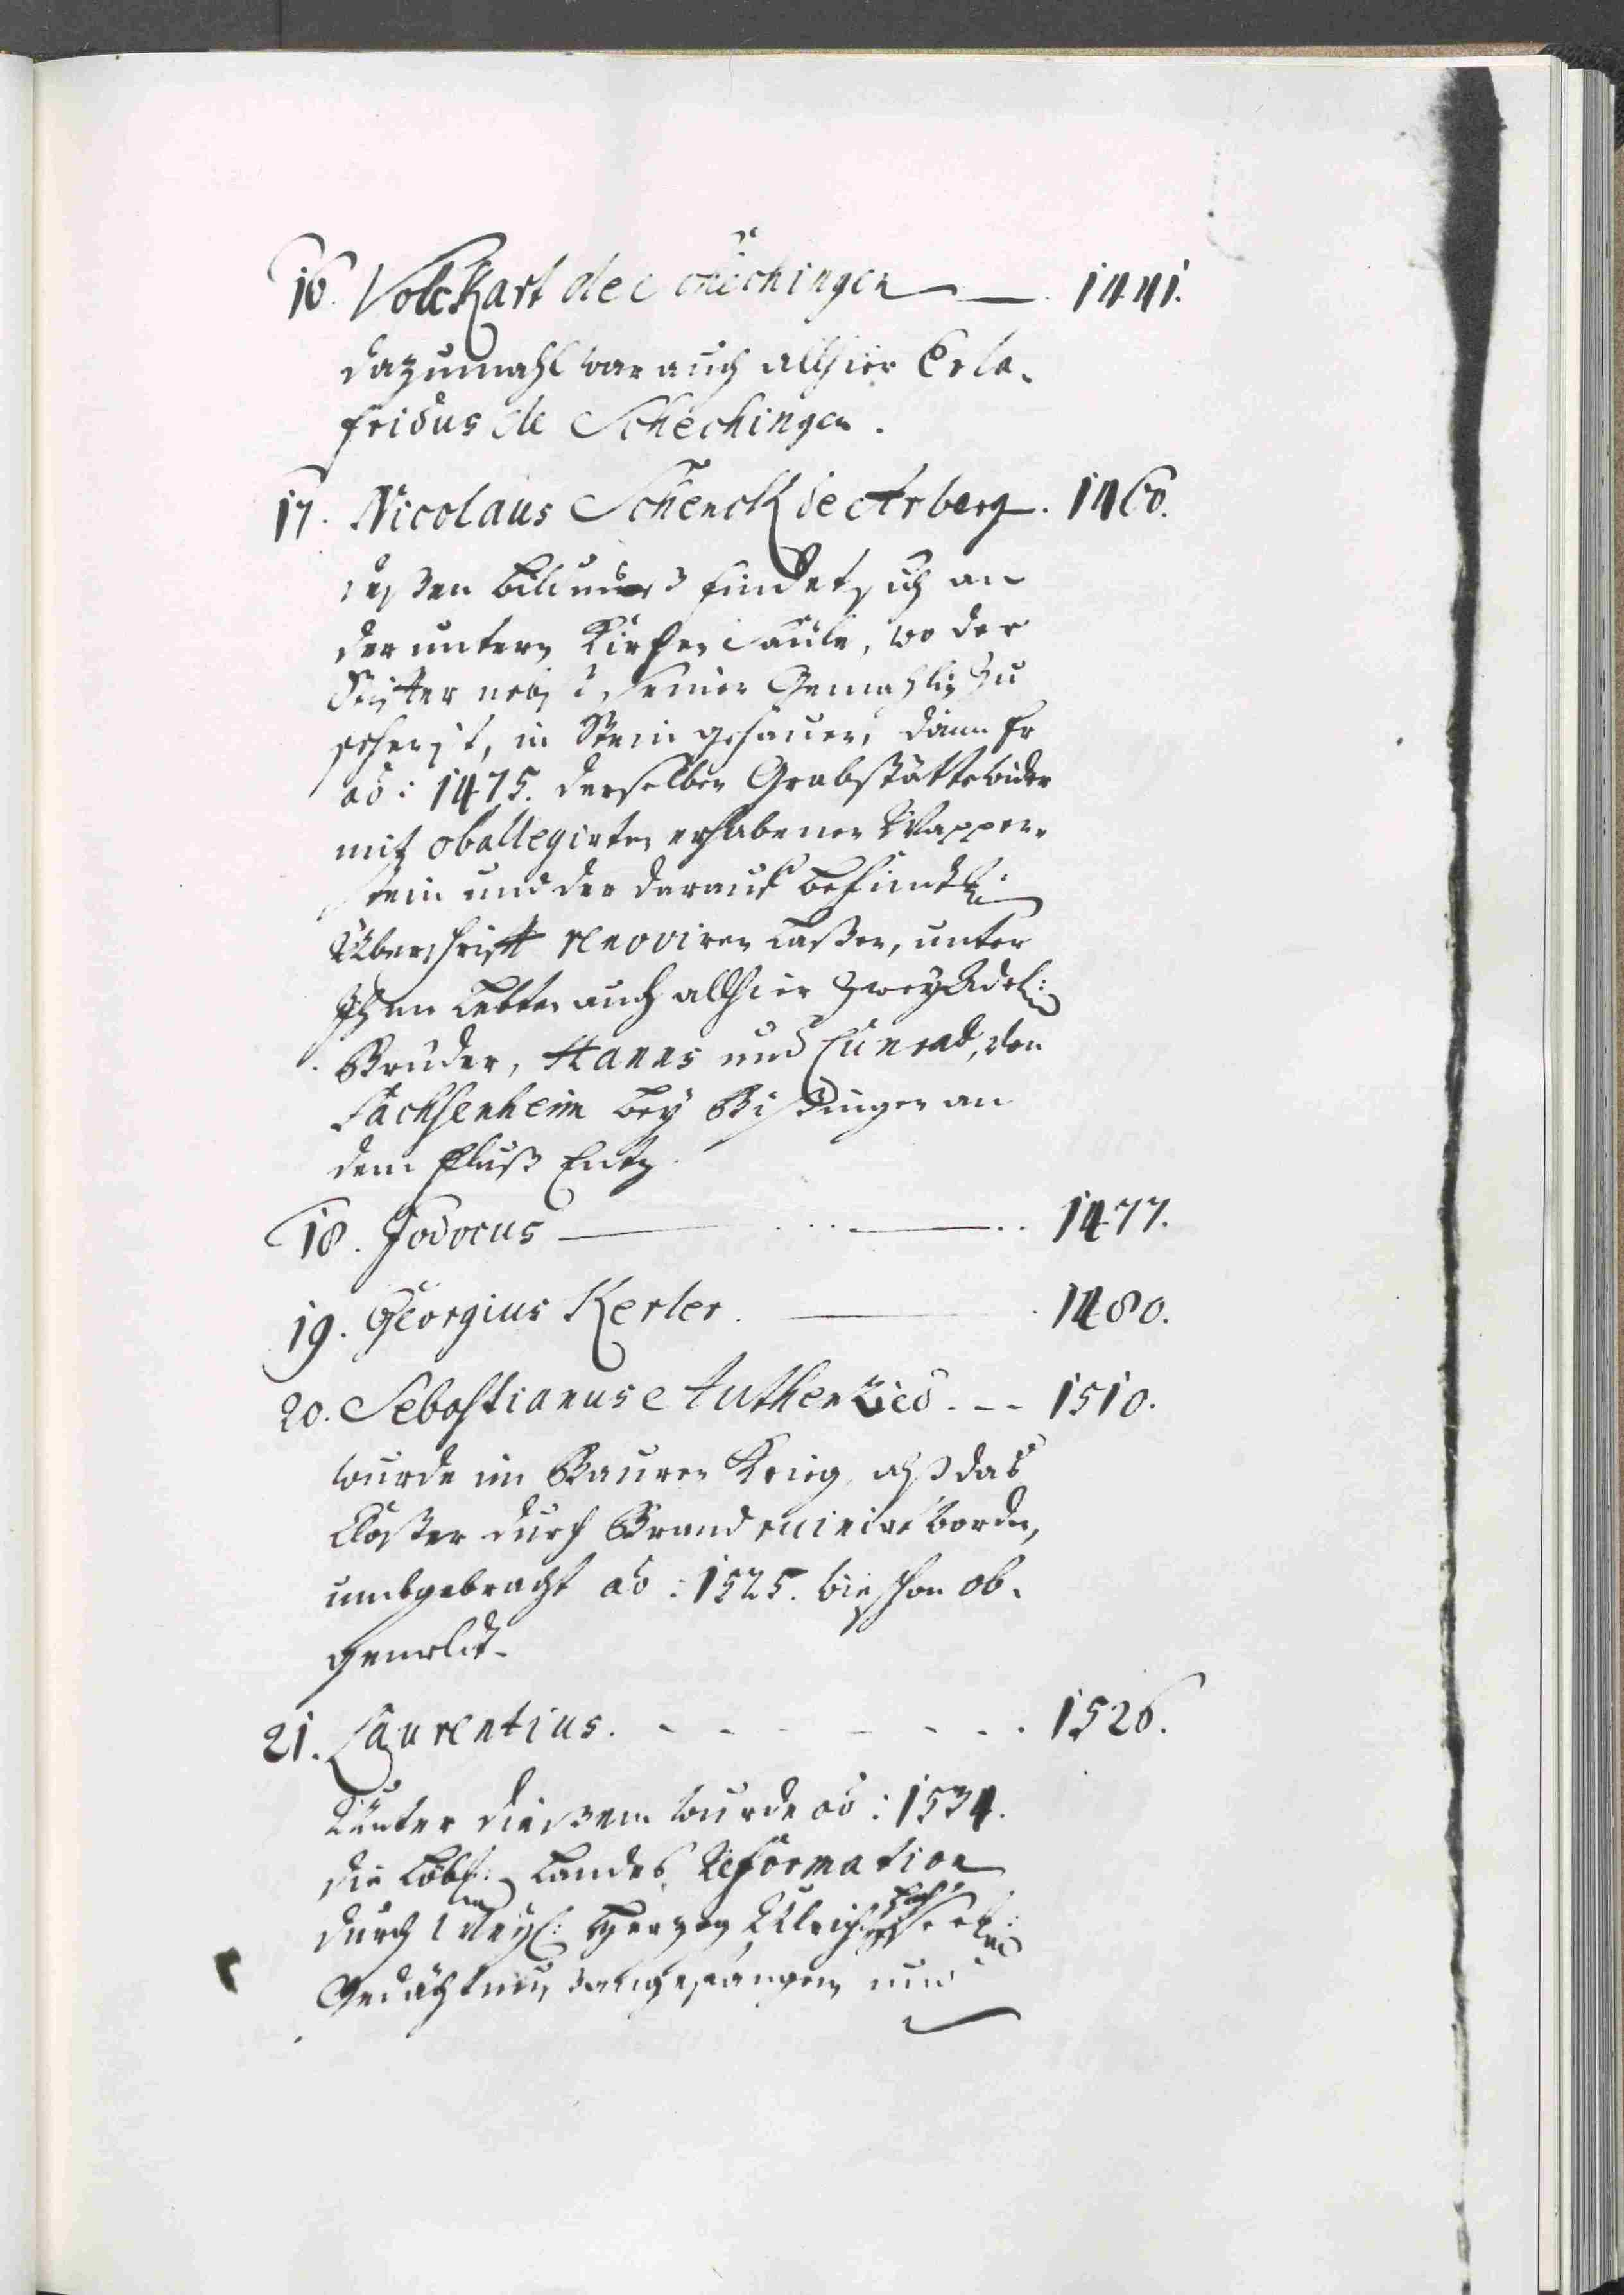 16. Volckart de Schechingen — 1441.
dazumahl war auch allhier Erla-
fridus de Schechingen.
17. Nicolaus Schenck de Arberg. 1460.
deßen Bildnuß findet sich an
der untern Kirchen Säule, wo der
Stifter nebst seiner Gemahlin zu
sehen ist, in Stein gehauen, dann Er
aõ: 1475. derselben Grabstätte wider
mit oballegirten erhabenen Wappen-
stein und der darauf befindtl:
Überschrift renoviren laßen, unter
Ihm lebten auch allhier zwey Adel:
Brüder, Hanns und Cunrad, von
Sachsenheim bey Bißingen an
dem Fluß Entz.
18. Jodocus — 1477.
19. Georgius Kerler. — 1480.
20. Sebastianus Authenried. -- 1510.
wurde im Bauren Krieg, alß das
Closter durch Brand ruinirt worden,
umbgebracht aõ: 1525. wie schon ob-
gemeldt.
21. Laurentius. - - - - - - 1526.
Unter dießem wurde aõ: 1534.
die Löbl: Landes Reformation
durch Weyl: Herzog Ulrich hoch seel:
Gedächtnuß angefangen und